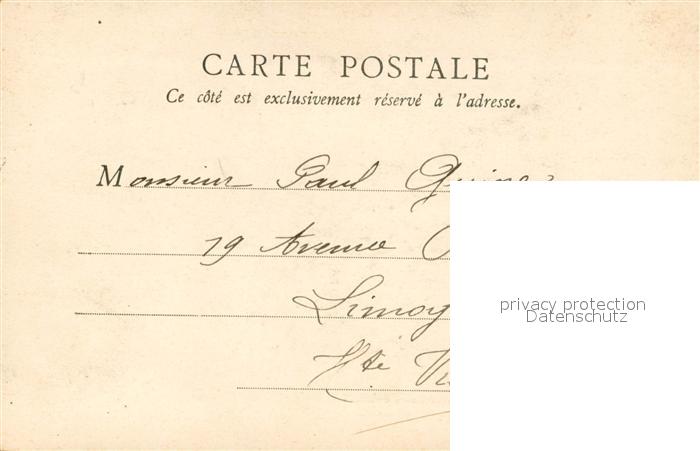 CARTE POSTALE
Ce côté est exclusivement réservé à l'adresse.
Monsieur Paul
19 Avenue
Limog
Hte
privacy protection
Datenschutz